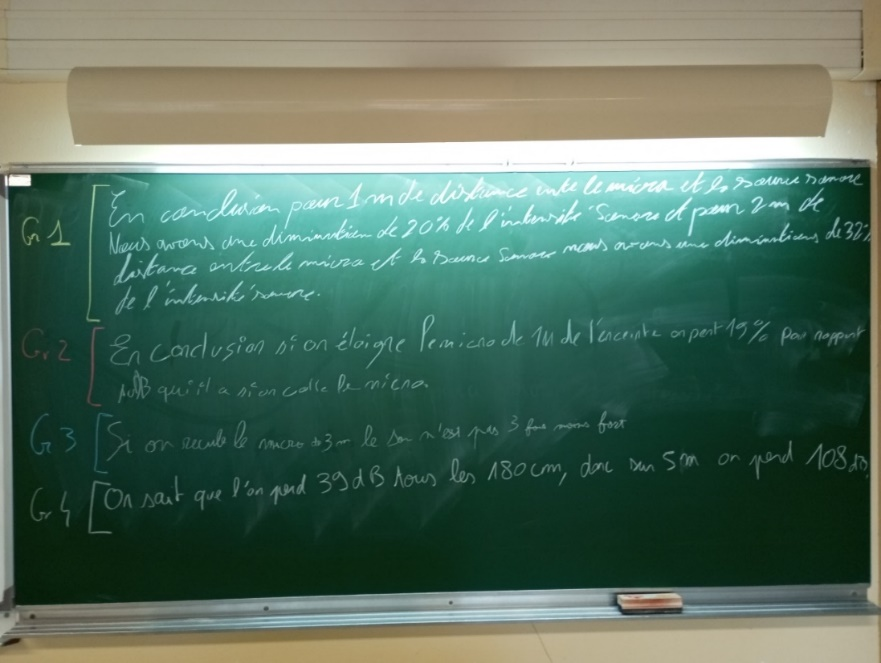 Gr 1 En conclusion pour 1 m de distance entre le micro et la source sonore
Nous avons une diminution de 20% de l'intensité Sonore et pour 2 m de
distance entre le micro et la source Sonore nous avons une diminutions de 32%
de l'intensité sonore.
Gr 2 En conclusion si on éloigne le micro de 1M de l'enceinte on pert 19% par rapport
qui il a si on colle le micro.
G 3 Si on recule le micro 3 m le son n'est pas 3 fois moins fort
Gr 4 On sait que l'on perd 39 dB tous les 180 cm, donc sur 5 m on perd 108 dB.